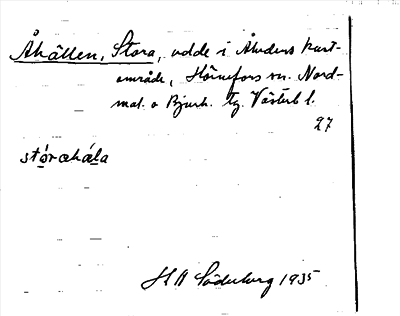 Åhällen, Stora, udde i Åhedens kust-
område, Hörnefors sn. Nord-
mal. o Bjurh. tg. Västerb l.
27
stórahä́la
H Söderberg 1935